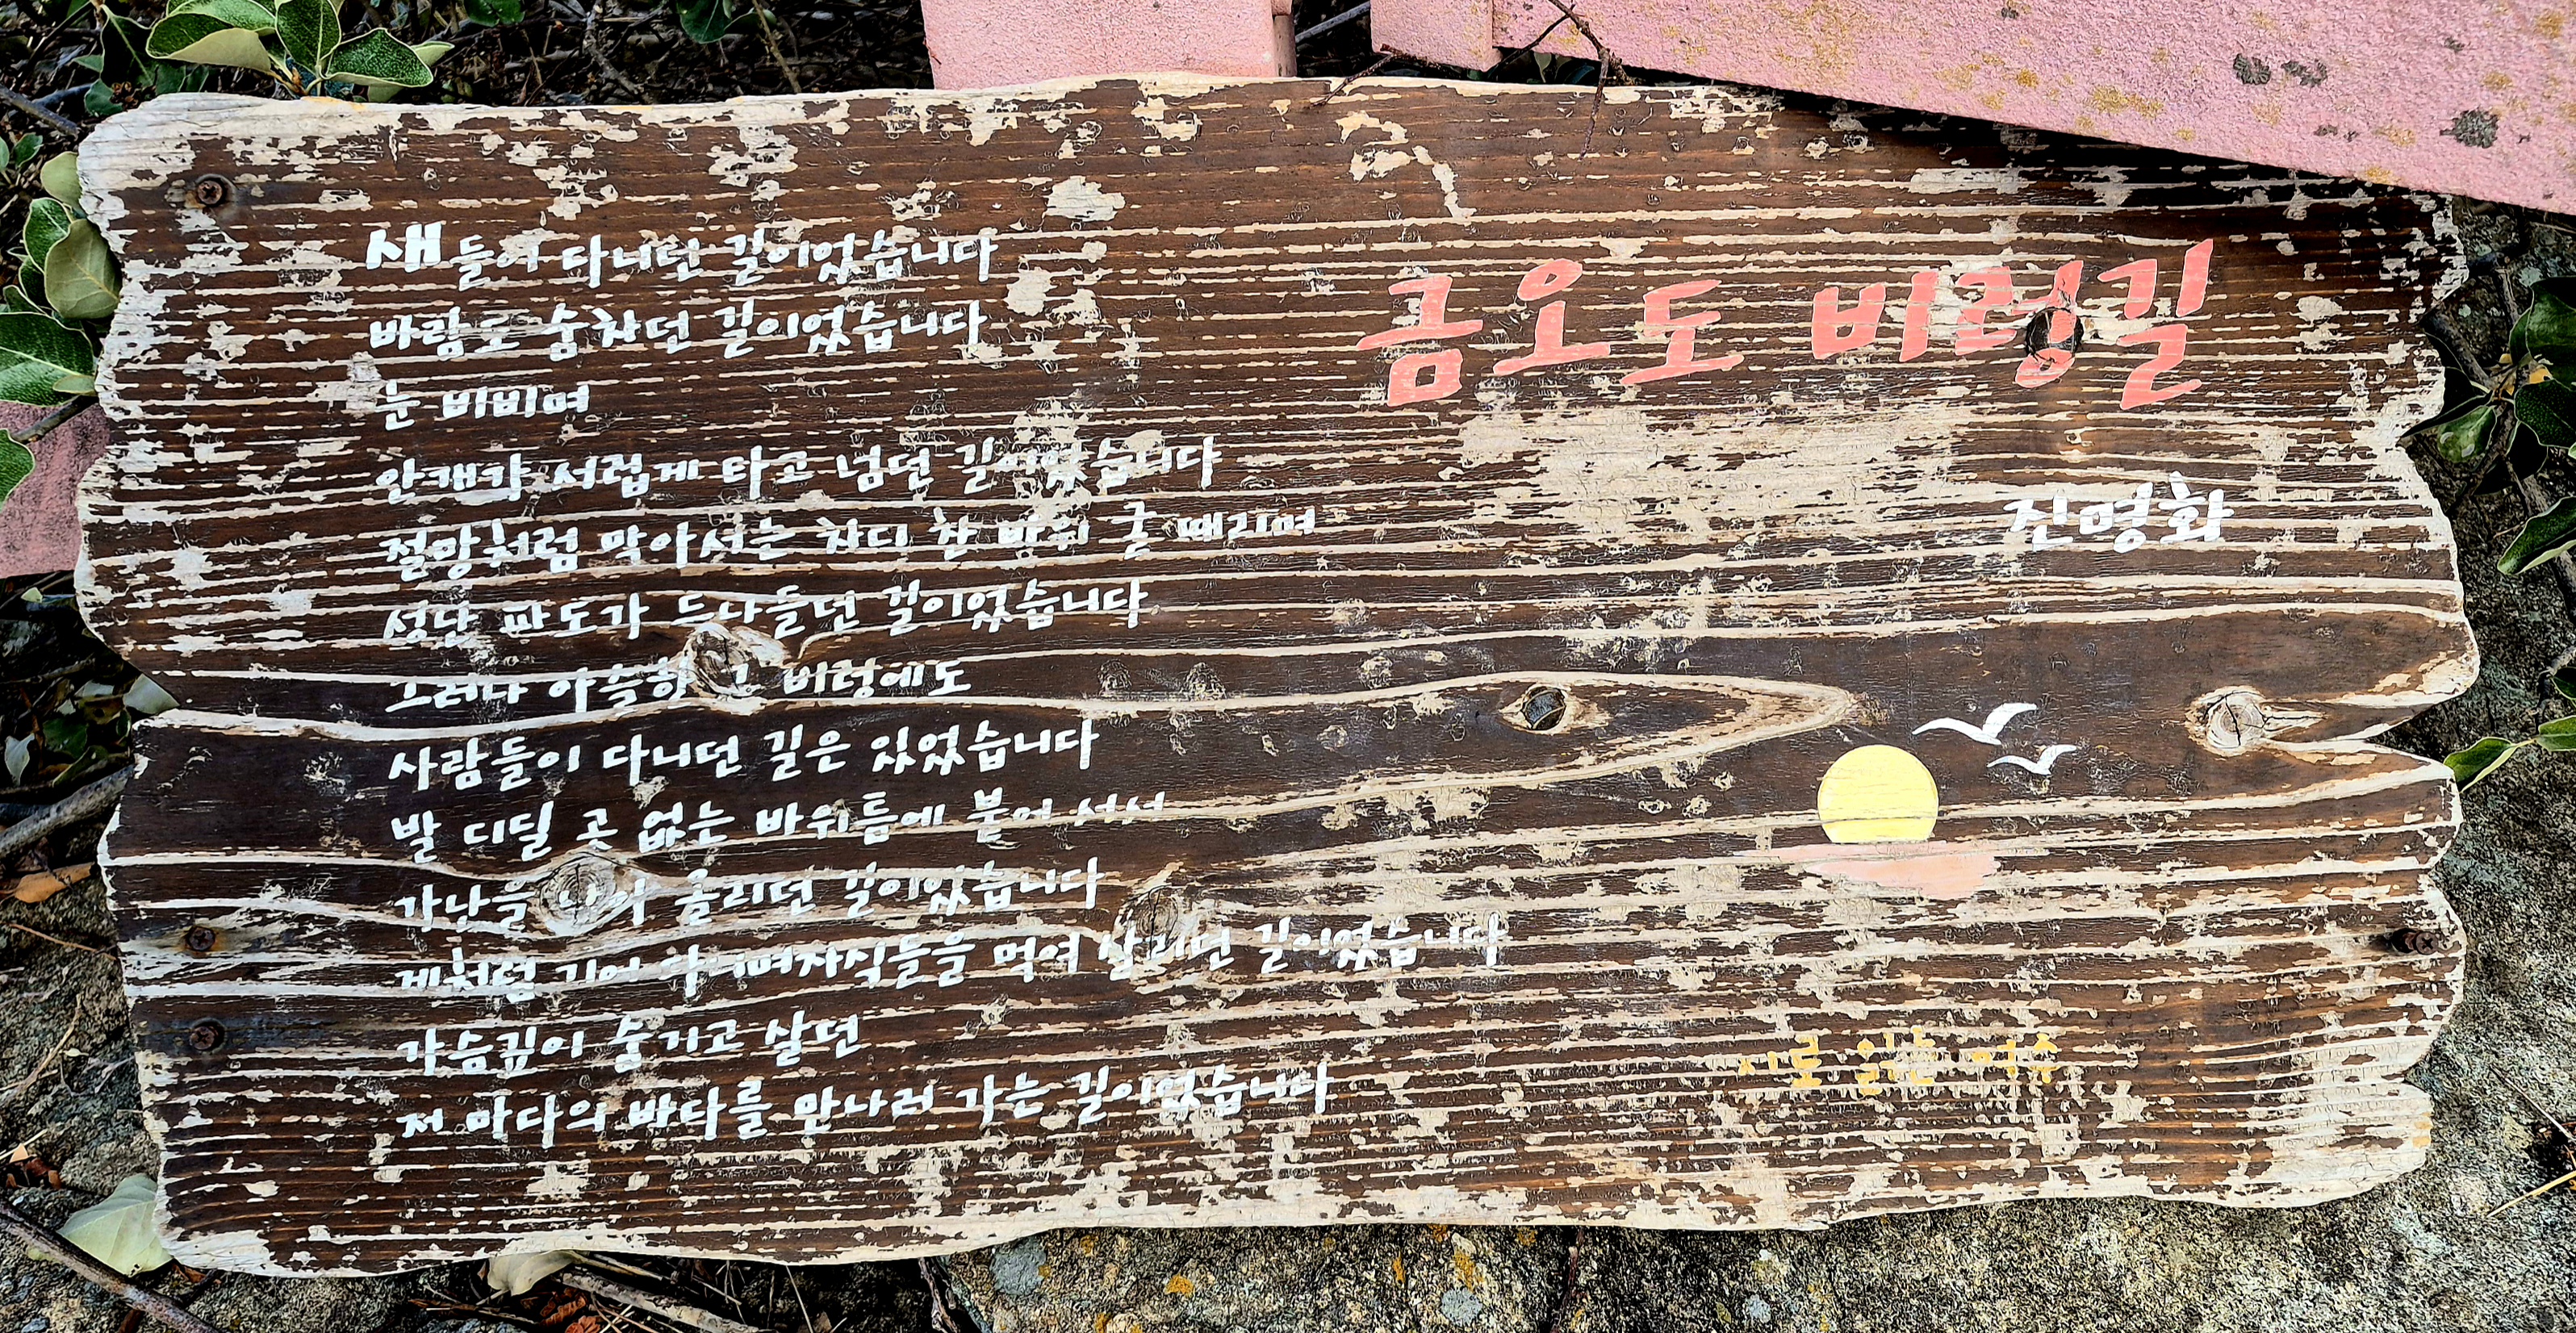 금오도 비렁길
진명화
새들이 다니던 길이었습니다
바람도 숨차던 길이었습니다
눈 비비며
안개가 서럽게 타고 넘던 길이었습니다
절망처럼 막아서는 차디 찬 바위 굴 때리며
성난 파도가 드나들던 길이었습니다
그러나 아슬한 그 비렁에도
사람들이 다니던 길은 있었습니다
발 디딜 곳 없는 바위틈에 붙어 서서
가난을 낚아 올리던 길이었습니다
게처럼 기어 자식들을 먹여 살리던 길이었습니다
가슴깊이 숨기고 살던
저 마다의 바다를 만나러 가는 길이었습니다
시로 읽는 여수